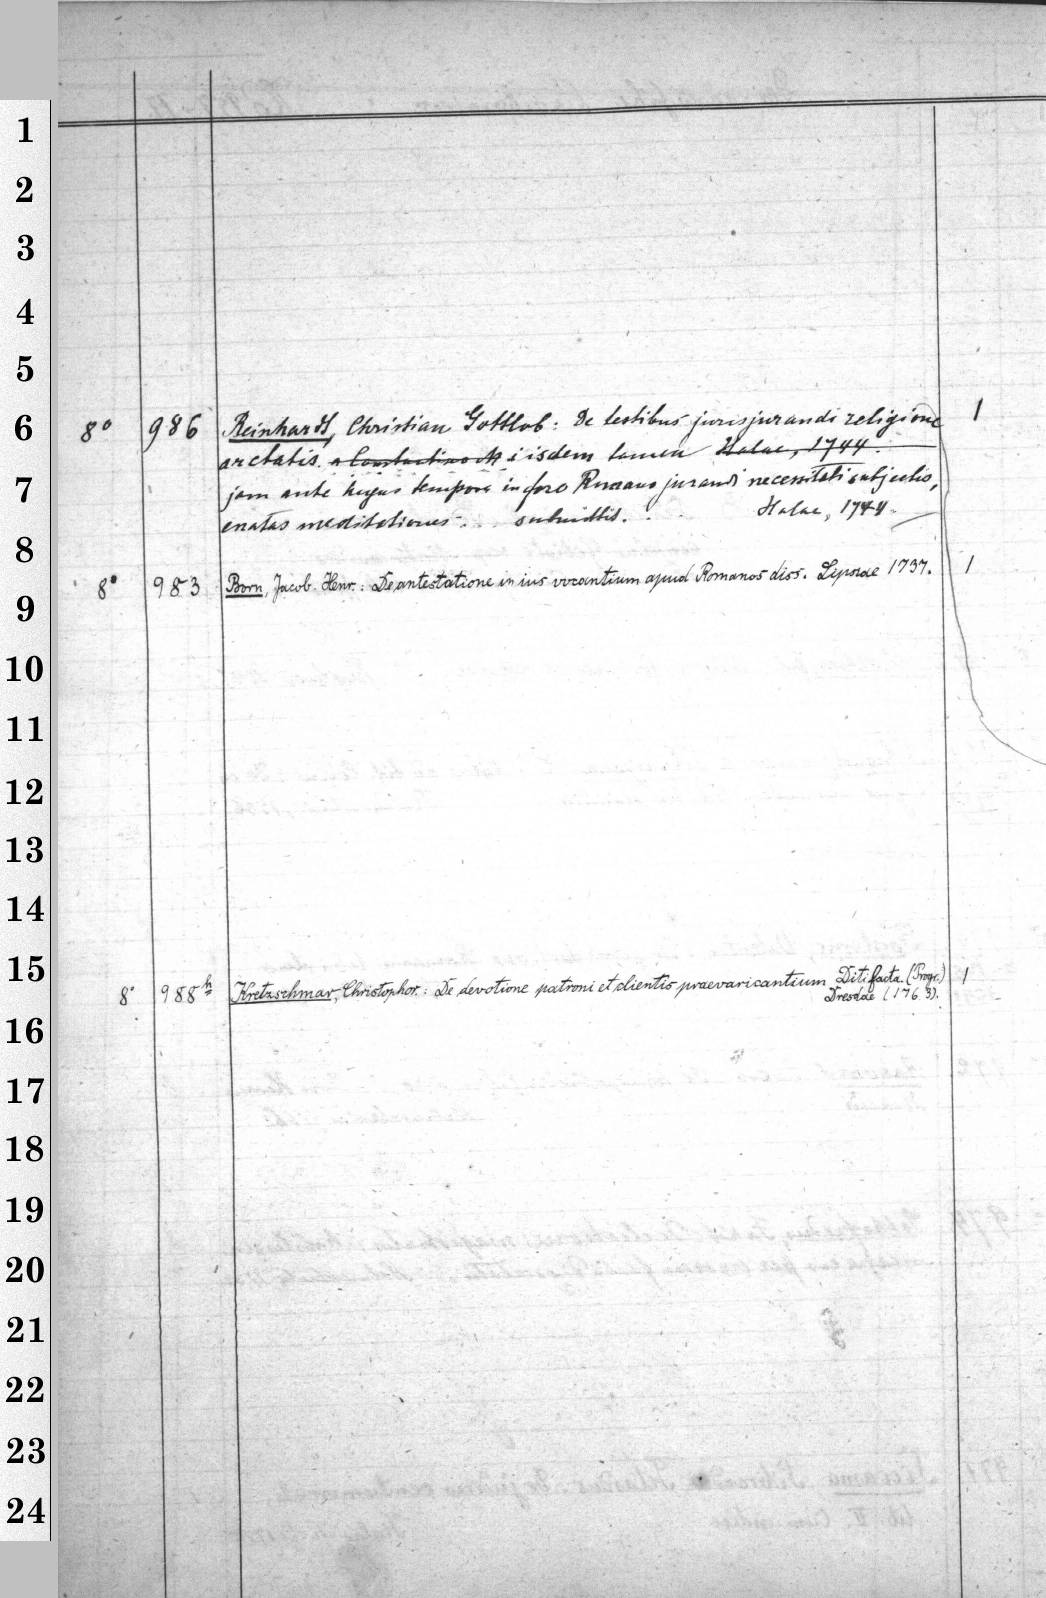 1
2
3
4
5
6
7
8
9
10
11
12
13
14
15
16
17
18
19
20
21
22
23
24
8° 986 Reinhardt, Christian Gottlob: De testibus jurisjurandi religione 1
arctatis a Constantino M iisdem tamen Halae, 1744.
jam ante hujus tempora in foro Romano jurandi necessitati subjectis,
enatas meditationes submittit. Halae, 1744.
8° 983 Born, Jacob. Henr.: De antestatione in ius vocantium apud Romanos diss. Lipsiae 1737. 1
8° 988h Kretzschmar, Christophor.: De devotione patroni et clientis praevaricantium Diti facta. (Progr.) 1
Dresdae (1763).